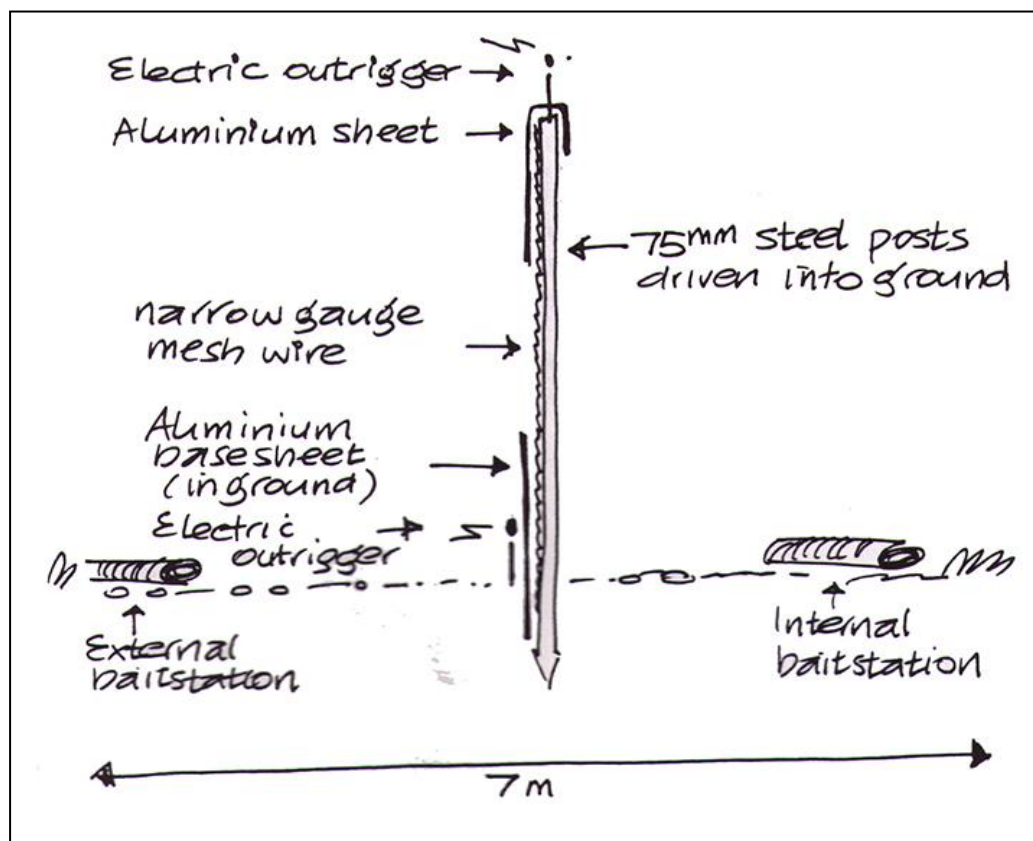 Electric outrigger
Aluminium sheet
75mm steel posts
driven into ground
narrow gauge
mesh wire
Aluminium
base sheet
(in ground)
Electric
outrigger
External
baitstation
Internal
baitstation
7m